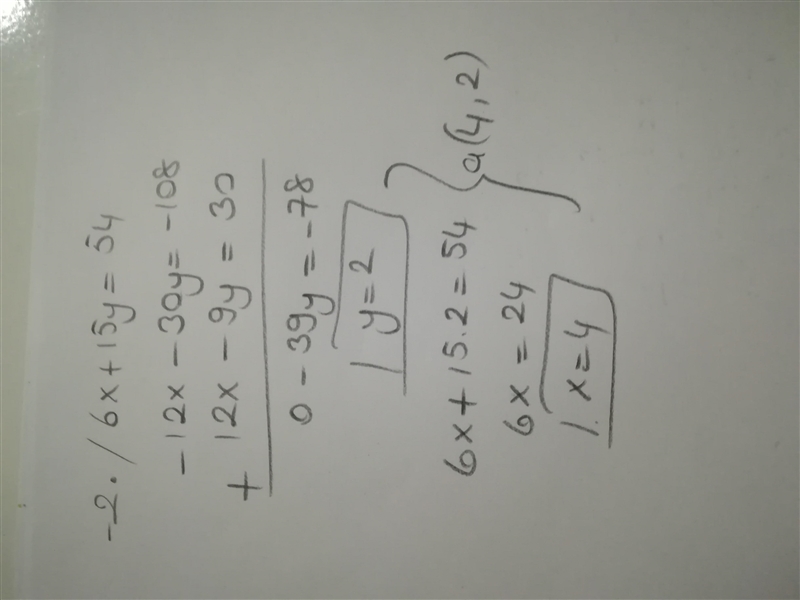 -2. / 6x + 15y = 54
-12x - 30y = -108
+ 12x - 9y = 30
0 - 39y = -78
y = 2
6x + 15.2 = 54
6x = 24
x = 4
a(4,2)